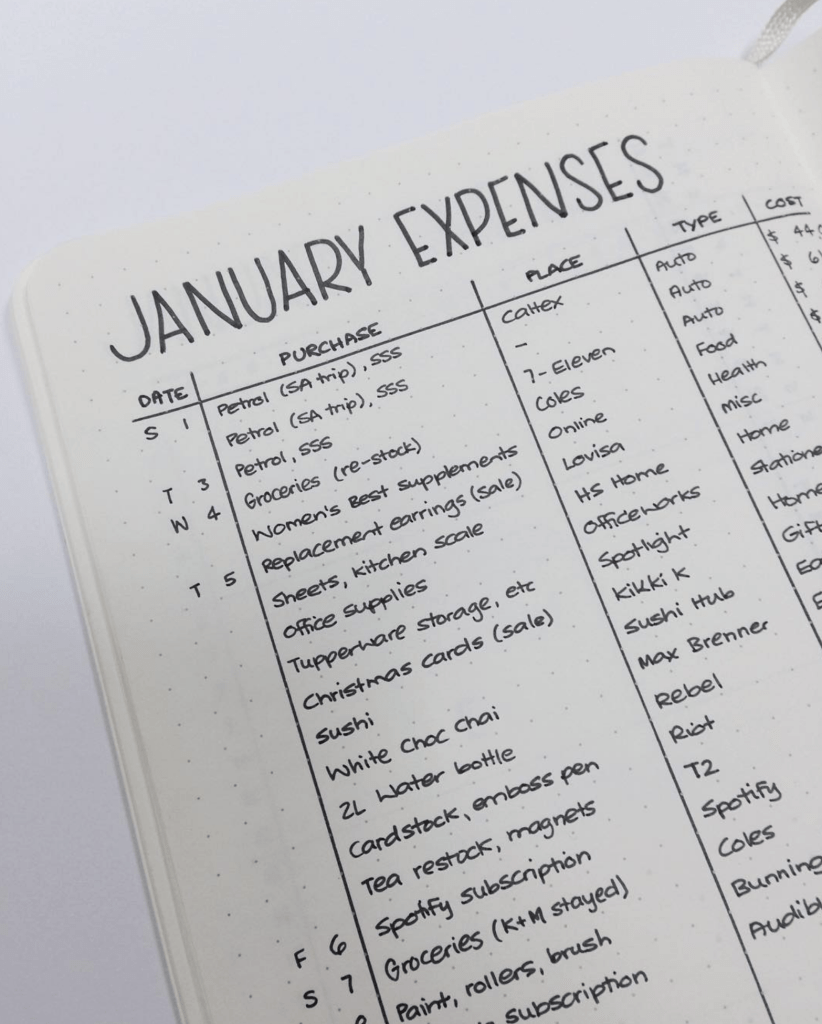 JANUARY EXPENSES
DATE PURCHASE PLACE TYPE COST
S 1 Petrol (SA trip), SSS Caltex Auto $ 44
Petrol (SA trip), SSS - Auto $ 6
T 3 Petrol, SSS 7-Eleven Auto $
W 4 Groceries (re-stock) Coles Food $
Women's Best supplements Online Health
T 5 Replacement earrings (sale) Lovisa Misc
Sheets, kitchen scale HS Home Home
Office supplies Officeworks Statione
Tupperware storage, etc Spotlight Home
Christmas cards (sale) Kikki K Gift
Sushi Sushi Hub
White Choc Chai Max Brenner
2L Water bottle Rebel
Cardstock, emboss pen Riot
Tea restock, magnets T2
F 6 Spotify subscription Spotify
S 7 Groceries (K+M stayed) Coles
Paint, rollers, brush Bunning
subscription Audibl